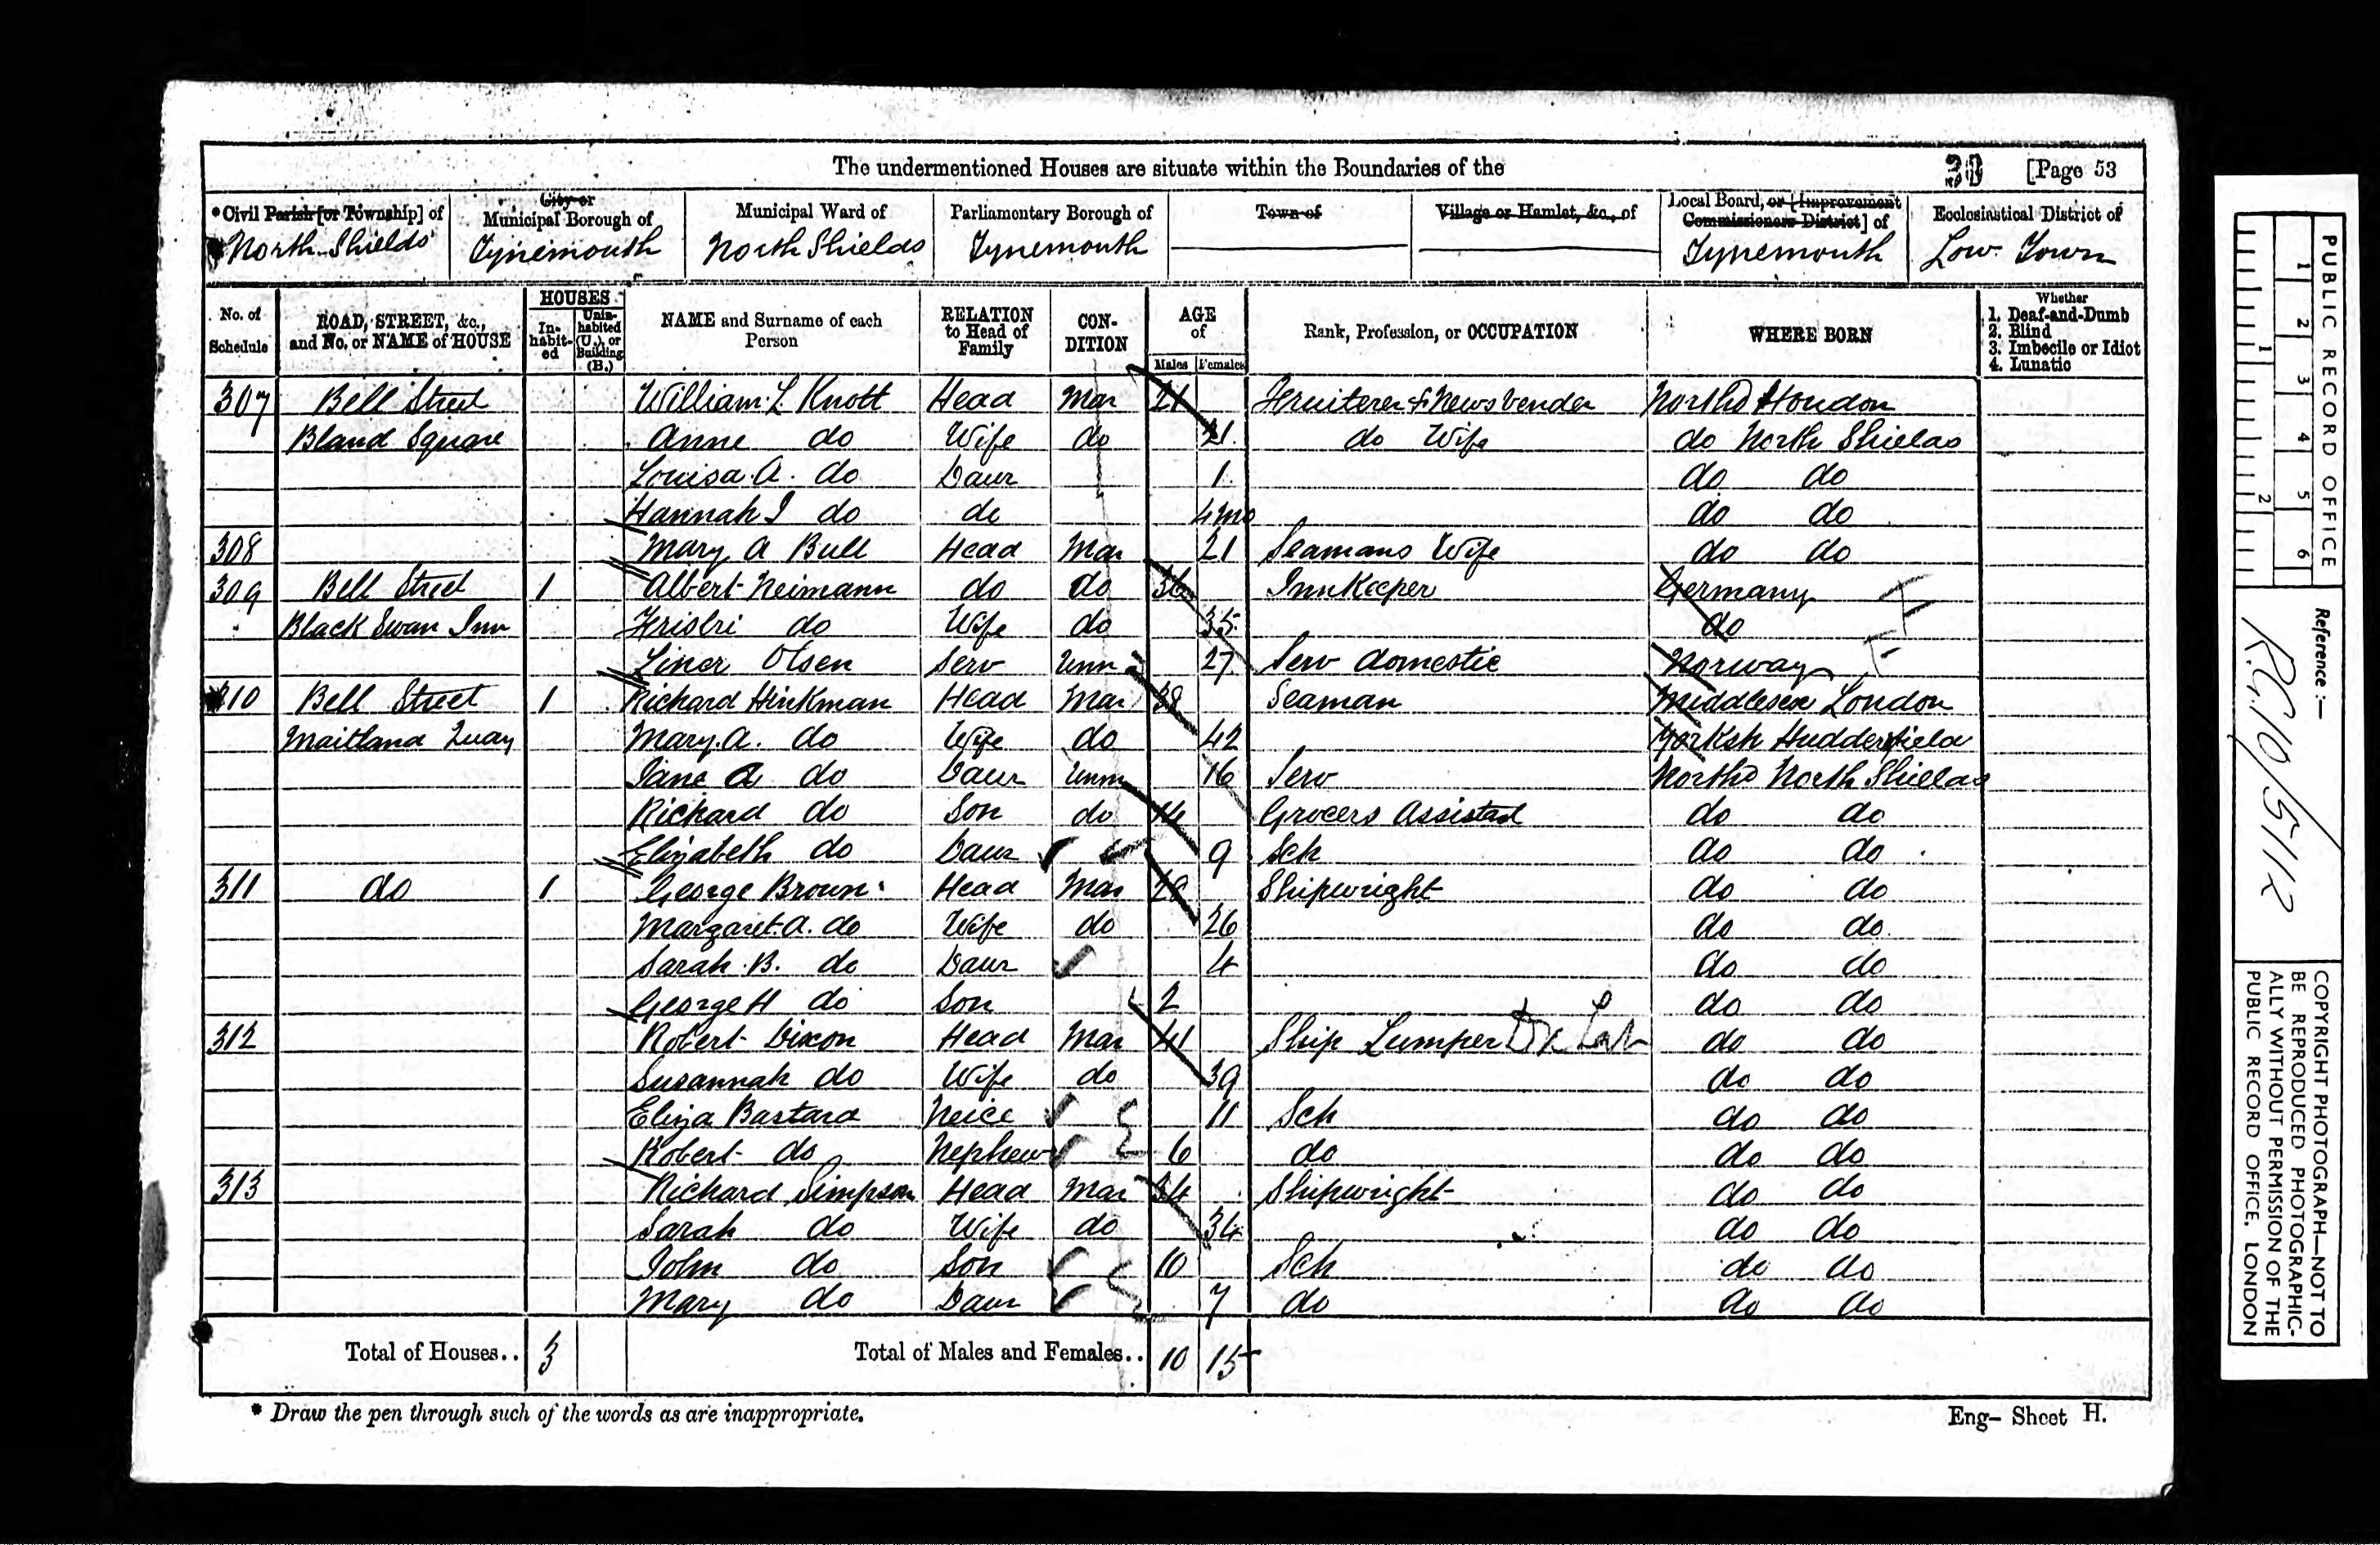 The undermentioned Houses are situate within the Boundaries of the [Page 53
*Civil Parish [or Township] of City or Municipal Borough of Municipal Ward of Parliamentary Borough of Town of Village or Hamlet, &c., of Local Board, or [Improvement Commissioners District] of Ecclesiastical District of
North Shields Tynemouth North Shields Tynemouth Tynemouth Low Town
No. of Schedule ROAD, STREET, &c., and No. or NAME of HOUSE HOUSES In-habit-ed Unin-habited (U.), or Building (B.) NAME and Surname of each Person RELATION to Head of Family CON-DITION AGE of Males Females Rank, Profession, or OCCUPATION WHERE BORN Whether 1. Deaf-and-Dumb 2. Blind 3. Imbecile or Idiot 4. Lunatic
307 Bell Street William L Knott Head Mar 21 Fruiterer & Newsvender Northd Houdon
Bland Square Anne do Wife do 21 do Wife do North Shields
Louisa A. do Daur 1 do do
Hannah I do do 4mo do do
308 Mary A Bull Head Mar 21 Seamans Wife do do
309 Bell Street 1 Albert Neimann do do 36 InnKeeper Germany
Black Swan Inn do Wife do 35 do
Liner Olsen Serv Unm 27 Serv domestic Norway
310 Bell Street 1 Richard Hinkman Head Mar 38 Seaman Middlesex London
Maitland Quay Mary. A. do Wife do 42 Yorksh Hudderfield
Jane A do Daur Unm 16 Serv Northd North Shields
Richard do Son do 14 Grocers Assistad do do
Elizabeth do Daur 9 Sch do do
311 do 1 George Brown Head Mar 28 Shipwright do do
Margaret. A. do Wife do 26 do do
Sarah. B. do Daur 4 do do
George H do Son 2 do do
312 Robert Dixon Head Mar 41 Ship Lumper Dk Lab do do
Susannah do Wife do 39 do do
Eliza Bastard Neice 11 Sch do do
Robert do Nephew 6 do do do
313 Richard Simpson Head Mar 34 Shipwright do do
Sarah do Wife do 34 do do
John do Son 10 Sch do do
Mary do Daur 7 do do do
Total of Houses.. 3 Total of Males and Females.. 10 15
* Draw the pen through such of the words as are inappropriate.
Eng- Sheet H.
PUBLIC RECORD OFFICE
1 2 3 4 5 6
1 2
Reference :-
R.G. 10/5112
COPYRIGHT PHOTOGRAPH—NOT TO
BE REPRODUCED PHOTOGRAPHIC-
ALLY WITHOUT PERMISSION OF THE
PUBLIC RECORD OFFICE, LONDON